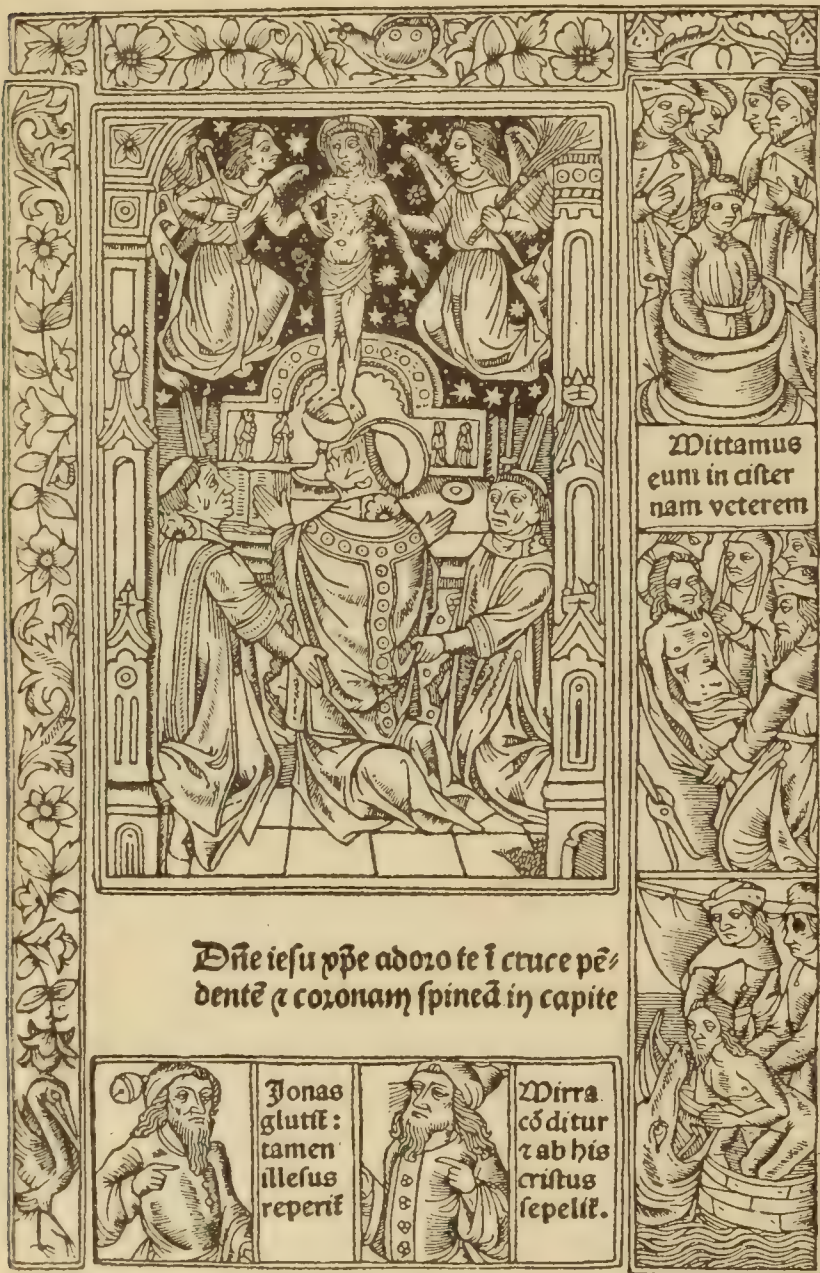 Mittamus
eum in cister
nam veterem
Dñe iesu xp̃e adoro te ĩ cruce pẽ⸗
dentẽ ⁊ coronam spineã in capite
Jonas
glutit̃ :
tamen
illesus
reperit̃
Mirra
cõditur
⁊ ab his
cristus
sepelit̃.